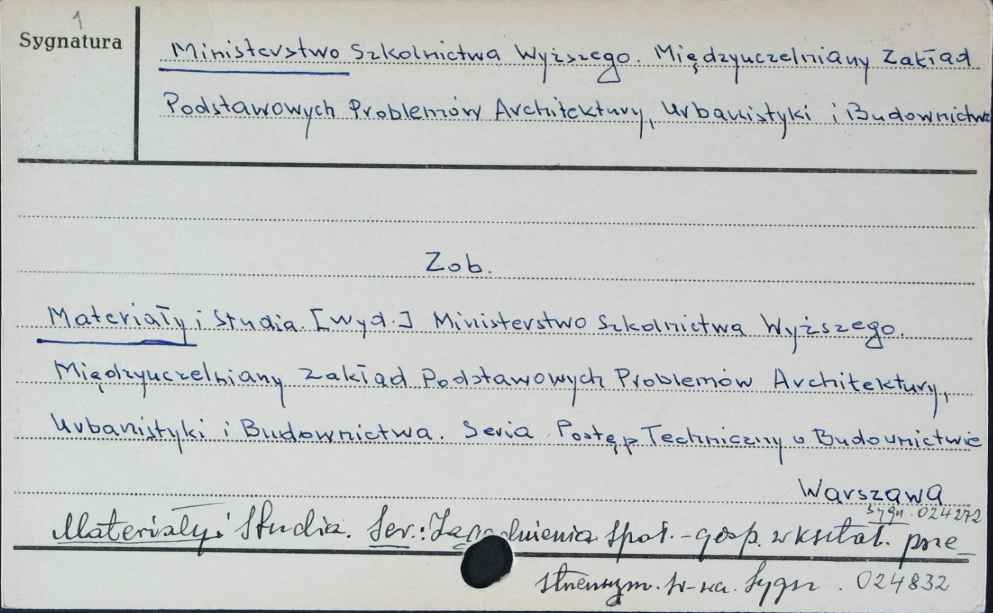 1
Sygnatura
Ministerstwo Szkolnictwa Wyższego. Międzyuczelniany Zakład
Podstawowych Problemów Architektury, Urbanistyki i Budownictwa
Zob.
Materiały i Studia. [Wyd.] Ministerstwo Szkolnictwa Wyższego.
Międzyuczelniany Zakład Podstawowych Problemów Architektury,
Urbanistyki i Budownictwa. Seria Postęp Techniczny w Budownictwie
Warszawa
sygn. 024272
Materiały i Studia. Ser.: Zagadnienia społ.-gosp. w kształt. prze-
strennym. W-wa. Sygn. 024832